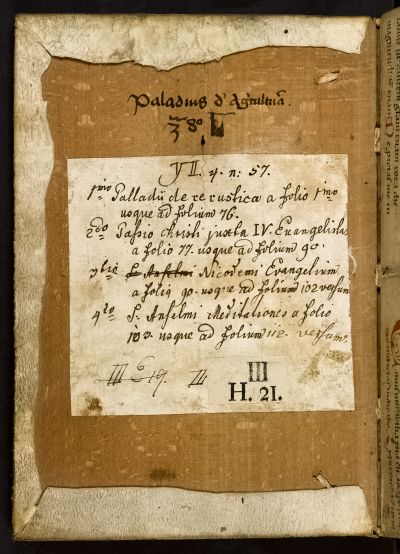 Paladius d' Agricultura.
YII. 4. n: 57.
1mo Palladii de re rustica a folio 1mo
usque ad folium 76.
2do Passio Christi juxta IV. Evangelistas
a folio 77. usque ad folium 90.
3tio S. Anselmi Nicodemi Evangelium
a folio 90. usque ad folium 102 versum
4to S. Anselmi Meditationes a folio
103. usque ad folium 112. versum.
III C 19. III
III
H. 21.